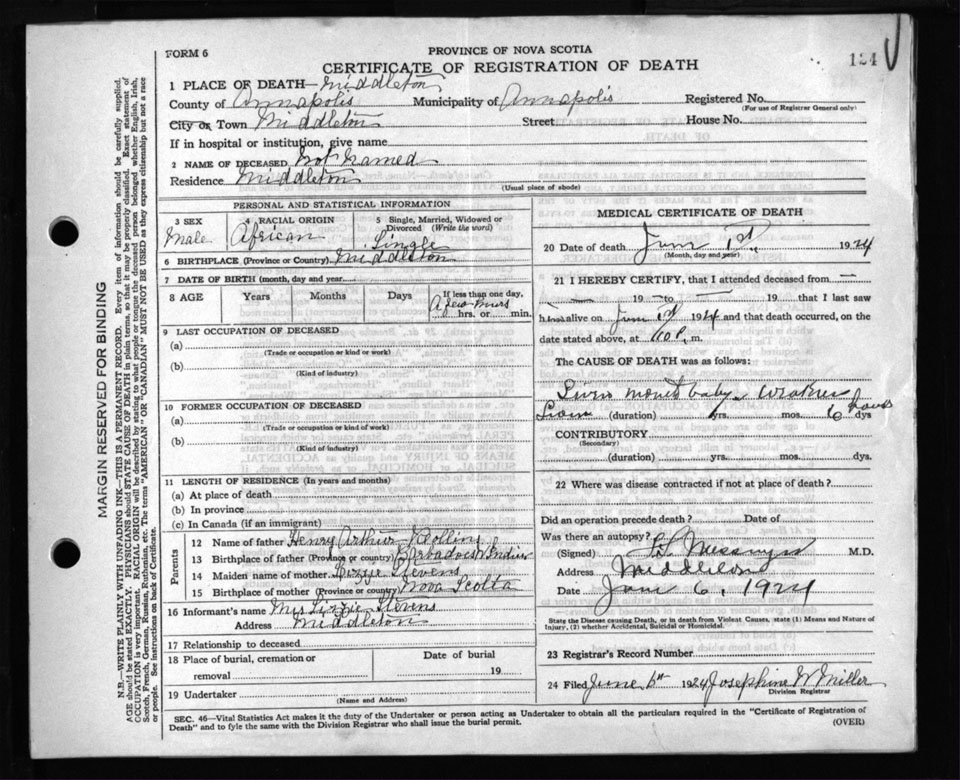 FORM 6
PROVINCE OF NOVA SCOTIA
CERTIFICATE OF REGISTRATION OF DEATH
124
1 PLACE OF DEATH— Middleton
County of Annapolis Municipality of Annapolis Registered No.
(For use of Registrar General only)
City or Town Middleton Street House No.
If in hospital or institution, give name
2 NAME OF DECEASED Not Named
Residence Middleton
(Usual place of abode)
PERSONAL AND STATISTICAL INFORMATION
3 SEX 4 RACIAL ORIGIN 5 Single, Married, Widowed or Divorced (Write the word)
Male African Single
6 BIRTHPLACE (Province or Country) Middleton
7 DATE OF BIRTH (month, day and year)
8 AGE Years Months Days If less than one day,
A few hours
hrs. or min.
9 LAST OCCUPATION OF DECEASED
(a)
(Trade or occupation or kind or work)
(b)
(Kind of industry)
10 FORMER OCCUPATION OF DECEASED
(a)
(Trade or occupation or kind of work)
(b)
(Kind of industry)
11 LENGTH OF RESIDENCE (In years and months)
(a) At place of death
(b) In province
(c) In Canada (if an immigrant)
Parents
12 Name of father Henry Arthur
13 Birthplace of father (Province or country) Barbadoes W Indies
14 Maiden name of mother Lizzie Stevens
15 Birthplace of mother (Province or country) Nova Scotia
16 Informant's name Mrs Lizzie Stevens
Address Middleton
17 Relationship to deceased
18 Place of burial, cremation or removal Date of burial
19
19 Undertaker
(Name and Address)
MEDICAL CERTIFICATE OF DEATH
20 Date of death June 1st 1924
(Month, day and year)
21 I HEREBY CERTIFY, that I attended deceased from —
— 19 — to — 19 that I last saw
h alive on June 1st 1924 and that death occurred, on
date stated above, at 10 P. m.
The CAUSE OF DEATH was as follows:
baby. Weakness
(duration) yrs. mos. 6 hours dys
CONTRIBUTORY
(Secondary)
(duration) yrs. mos. dys.
22 Where was disease contracted if not at place of death?
Did an operation precede death? Date of
Was there an autopsy?
(Signed) Messenger M.D.
Address Middleton
Date June 6, 1924
State the Disease causing Death, or in death from Violent Causes, state (1) Means and Nature of
Injury, (2) whether Accidental, Suicidal or Homicidal.
23 Registrar's Record Number
24 Filed June 6th 1924 Josephine W Miller
Division Registrar
SEC. 46—Vital Statistics Act makes it the duty of the Undertaker or person acting as Undertaker to obtain all the particulars required in the "Certificate of Registration of
Death" and to fyle this with the Division Registrar who shall issue the burial permit.
(OVER)
MARGIN RESERVED FOR BINDING
N.B.—WRITE PLAINLY WITH UNFADING INK—THIS IS A PERMANENT RECORD. Every item of information should be carefully supplied.
AGE should be stated EXACTLY. PHYSICIANS should STATE CAUSE OF DEATH in plain terms, so that it may be properly classified. Exact statement of
OCCUPATION is very important. RACIAL ORIGIN will be described by stating to what people or tongue the deceased person belonged whether English, Irish,
Scotch, French, German, Russian, Ruthenian, etc. The terms "AMERICAN" OR "CANADIAN" MUST NOT BE USED as they express citizenship but not a race
or people. See instructions on back of Certificate.